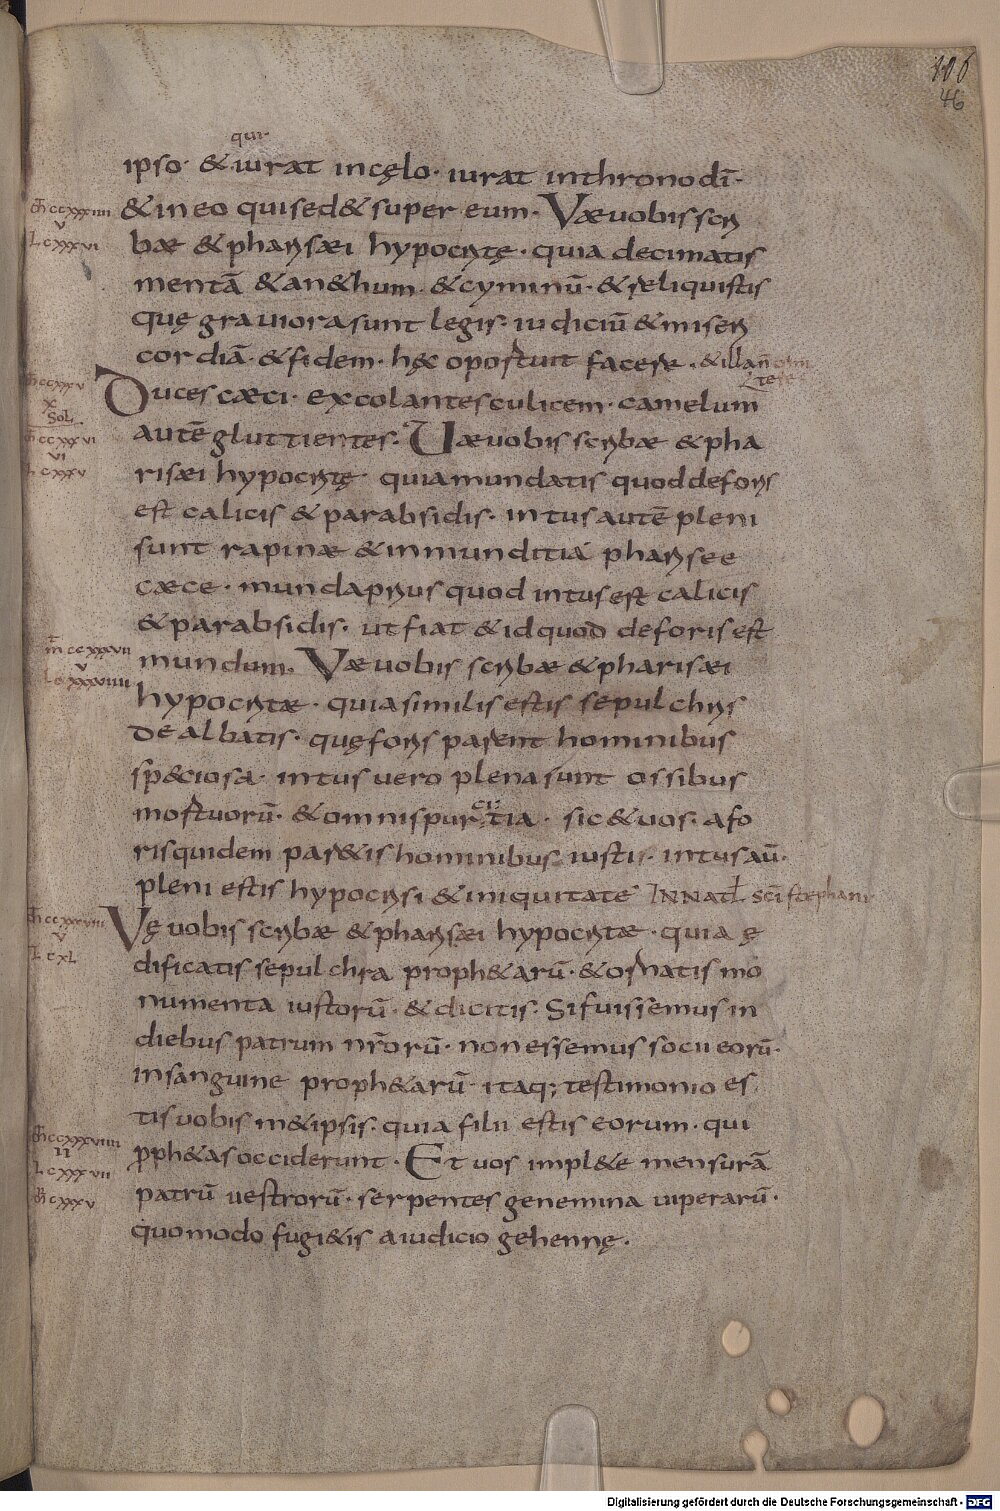 116
46
qui
ipso· & iurat in cęlo· iurat in throno dī·
& in eo qui sed& super eum· Væ uobis scri
bæ & pharisæi hypocritę· quia decimatis
mentā & an&hum & cyminū· & reliquistis
quę grauiora sunt legis· iudiciū & miseri
cordiā· & fidem· hęc oportuit facere· & illa n̄ omi
ttere
Duces cæci· excolantes culicem· camelum
autē gluttientes· Uæ uobis scribæ & pha
risæi hypocritę· quia mundatis quod deforis
est calicis & parabsidis· intus autē pleni
sunt rapinæ & inmunditia pharisee
cæce· munda prius quod intus est calicis
& parabsidis· ut fiat & id quod deforis est
mundum· Væ uobis scribæ & pharisæi
hypocritæ· quia similis estis sepulchris
dealbatis· quę foris parent hominibus
sp&ciosa· intus uero plena sunt ossibus
mortuorū· & omni spurcitia· sic & uos· afo
ris quidem par&is hominibus iusti· intus aū·
pleni estis hypocrisi & iniquitate IN NATL SCI stephani
Vę uobis scribæ & pharisæi hypocritæ· quia ę
dificatis sepulchra proph&arū· & ornatis mo
numenta iustorū· & dicitis· Si fuissemus in
diebus patrum nr̄orū· non essemus socii eorū·
in sanguine proph&arū· itaq; testimonio es
tis uobis m&ipsis· quia filii estis eorum· qui
pph&as occiderunt· Et uos impl&e mensurā
patrū uestrorū· serpentes genemina uiperarū·
quomodo fugi&is a iudicio gehennę.
ccxxxiiii
v
L cxxxvi
ccxxxv
x
SOL
ccxxxvi
vi
cxxxv
m̄ ccxxxvii
v
ccxxxviii
v
L cxL
ccxxxviiii
L cxxxvii
cxxxv
Digitalisierung gefördert durch die Deutsche Forschungsgemeinschaft - DFG